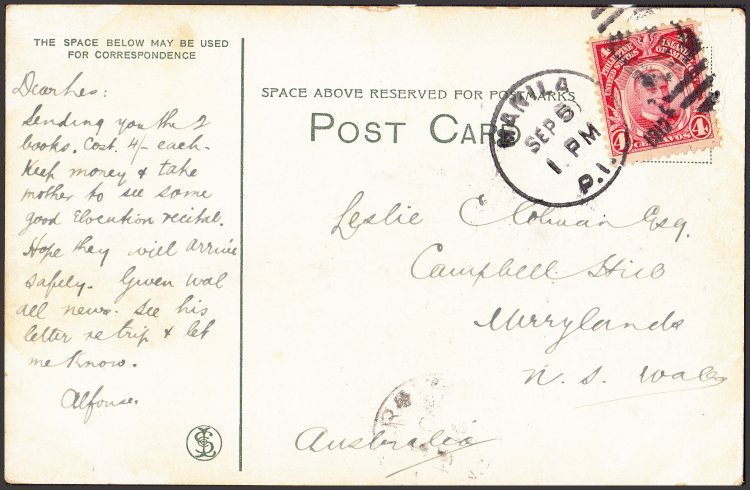 THE SPACE BELOW MAY BE USED
FOR CORRESPONDENCE
Dear Les:
Sending you the 2
books. Cost 4/- each.
Keep money & take
mother to see some
good Elocution recital.
Hope they will arrive
safely. Given Wal
all news. See his
letter re trip & let
me know.
Alfonse.
SPACE ABOVE RESERVED FOR POSTMARKS
POST CARD
MANILA
SEP 5
1 PM
P.I.
PHILIPPINE ISLANDS
UNITED STATES OF AMERICA
4 CENTAVOS 4
Leslie Esq.
Campbell Hill
Merrylands
N. S. Wales
Australia